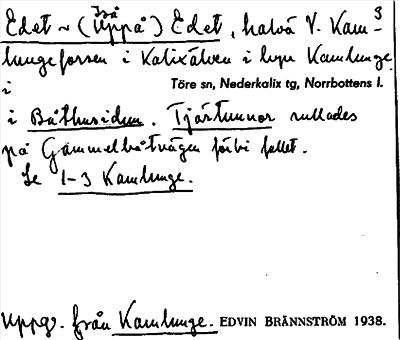 Edet ~ (på Uppå) Edet, halvö V. Kam-
lungeforsen i Kalixälven i byn Kamlunge
i Töre sn, Nederkalix tg, Norrbottens l.
i Båthusidun. Tjärtunnor rullades
på Gammelbåtvägen förbi fallet.
Se 1-3 Kamlunge.
Uppg. från Kamlunge. EDVIN BRÄNNSTRÖM 1938.